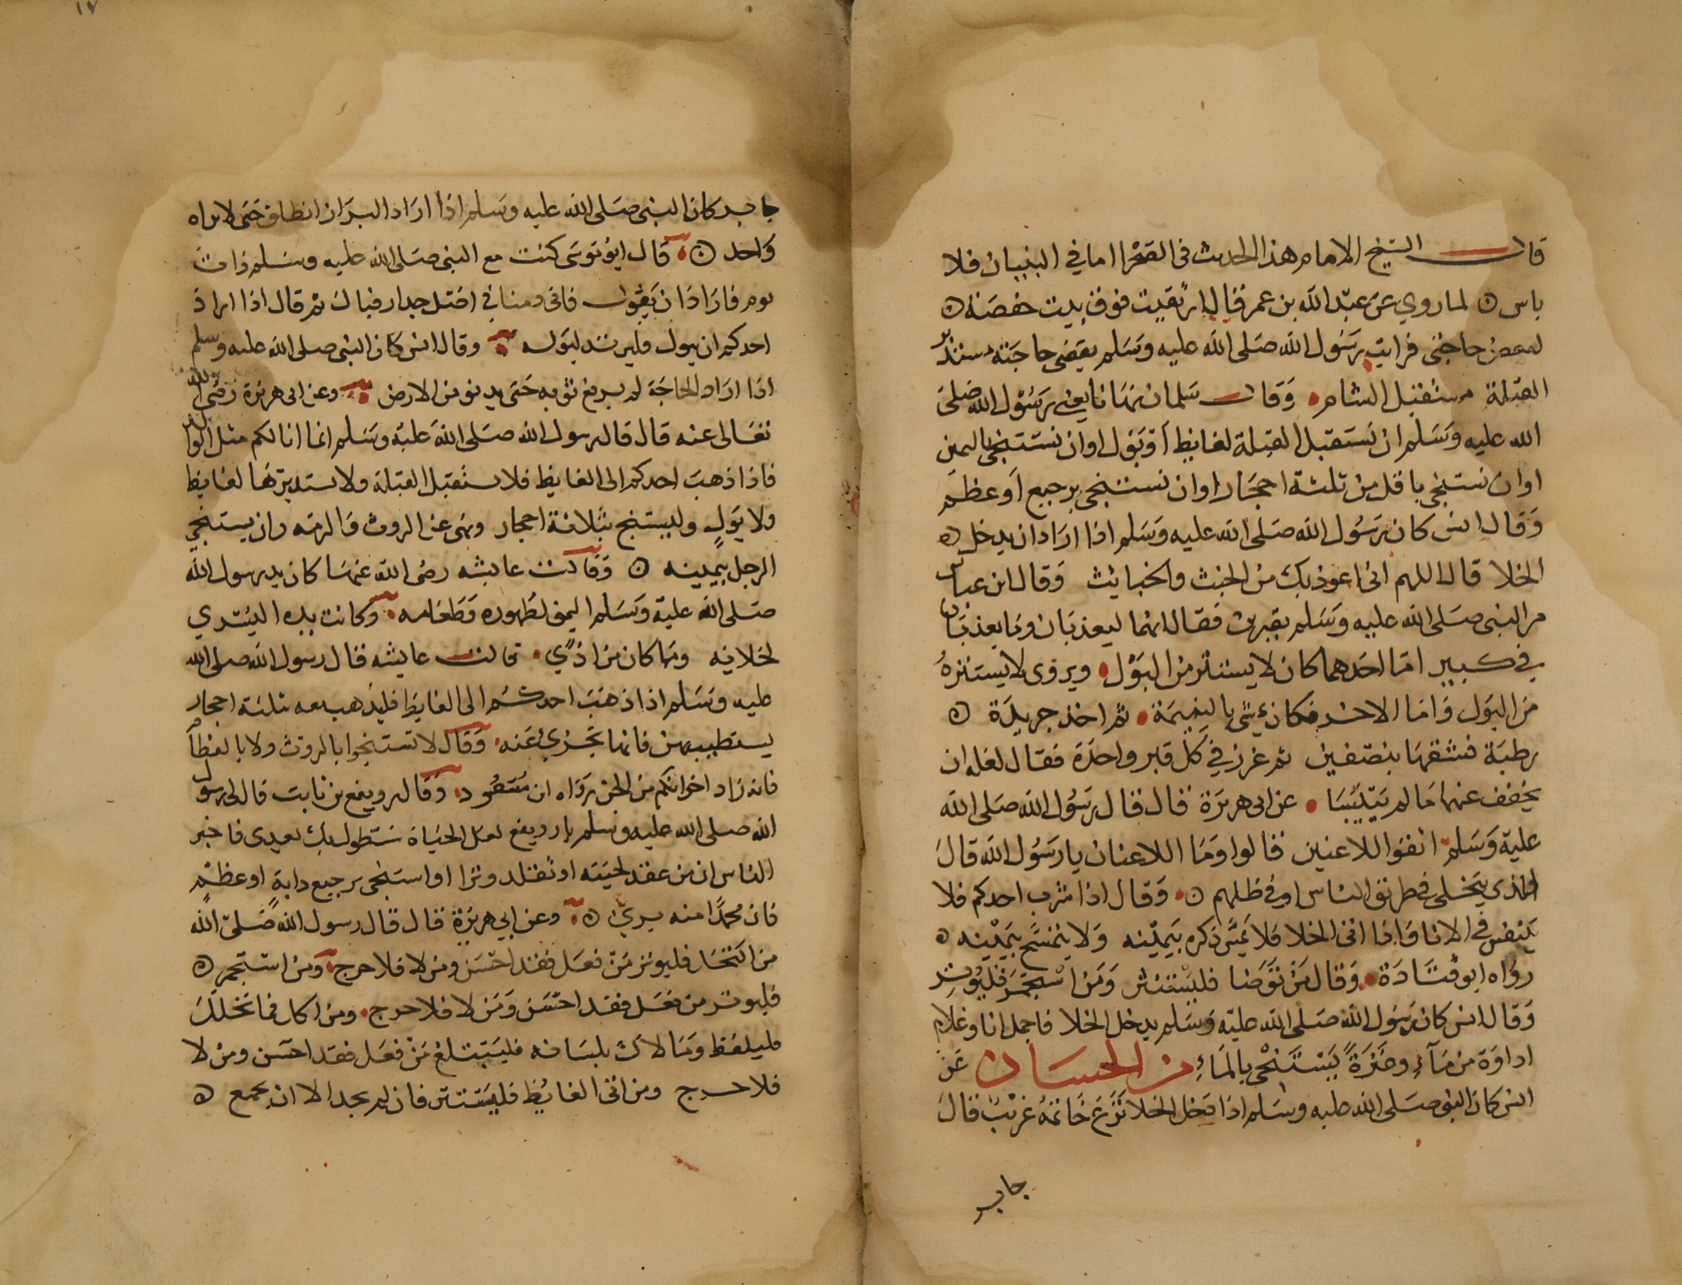 قال الشيخ الامام هذا الحديث في الصحرا اما في البنيان فلا
باس لما روي عن عبد الله بن عمر قال ارتقيت فوق بيت حفصة
لبعض حاجتى فرايت رسول الله صلى الله عليه وسلم يقضى حاجته مستدبر
القبلة مستقبل الشام وقال سلمان نهانا يعنى رسول الله صلى
الله عليه وسلم ان نستقبل القبلة لغايط او بول او ان نستنجى باليمين
او ان نستنجى باقل من ثلثة احجار او ان نستنجى برجيع او عظم
وقال انس كان رسول الله صلى الله عليه وسلم اذا اراد ان يدخل
الخلا قال اللهم انى اعوذ بك من الخبث والخبائث وقال ابن عباس
مر النبى صلى الله عليه وسلم بقبرين فقال انهما ليعذبان وما يعذبان
في كبير اما احدهما كان لا يستتر من البول ويروى لا يستنزه
من البول واما الاخر فكان يمشى بالنميمة ثم اخذ جريدة
رطبة فشقها بنصفين ثم غرز في كل قبر واحدة فقال لعله ان
يخفف عنهما ما لم ييبسا عن ابى هريرة قال قال رسول الله صلى الله
عليه وسلم اتقوا اللاعنين قالوا وما اللاعنان يا رسول الله قال
الذى يتخلى في طريق الناس او في ظلهم وقال اذا شرب احدكم فلا
يتنفس في الانا واذا اتى الخلا فلا يمس ذكره بيمينه ولا يتمسح بيمينه
رواه ابو قتادة وقال من توضا فليستنثر ومن استجمر فليوتر
وقال انس كان رسول الله صلى الله عليه وسلم يدخل الخلا فاحمل انا وغلام
اداوة من مآء وعنزة يستنجى بالماء من الحسان عن
انس كان النبى صلى الله عليه وسلم اذا دخل الخلا نزع خاتمه غريب قال
جابر
١٧
جابر كان النبى صلى الله عليه وسلم اذا اراد البراز انطلق حتى لا يراه
واحد قال ابو موسى كنت مع النبى صلى الله عليه وسلم ذات
يوم فاراد ان يبول فاتى دمثا في اصل جدار فبال ثم قال اذا اراد
احدكم ان يبول فليرتد لبوله وقال انس كان النبى صلى الله عليه وسلم
اذا اراد الحاجة لم يرفع ثوبه حتى يدنو من الارض وعن ابى هريرة رضى الله
تعالى عنه قال قال رسول الله صلى الله عليه وسلم انما انا لكم مثل الوالد
فاذا ذهب احدكم الى الغايط فلا يستقبل القبلة ولا يستدبرها لغايط
ولا بول وليستنج بثلاثة احجار ونهى عن الروث والرمة وان يستنجي
الرجل بيمينه وقالت عايشه رضى الله عنها كان يد رسول الله
صلى الله عليه وسلم اليمنى لطهوره وطعامه وكانت يده اليسرى
لخلائه وما كان من اذى قالت عايشه قال رسول الله صلى الله
عليه وسلم اذا ذهب احدكم الى الغايط فليذهب معه بثلثة احجار
يستطيب بهن فانها تجزئ عنه وقال لا تستنجوا بالروث ولا بالعظام
فانه زاد اخوانكم من الجن رواه ابن مسعود وقال رويفع بن ثابت قال لى رسول
الله صلى الله عليه وسلم يا رويفع لعل الحياة ستطول بك بعدى فاخبر
الناس ان من عقد لحيته او تقلد وترا او استنجى برجيع دابة او عظم
فان محمدا منه بري وعن ابي هريرة قال قال رسول الله صلى الله
من اكتحل فليوتر من فعل فقد احسن ومن لا فلا حرج ومن استجمر
فليوتر من فعل فقد احسن ومن لا فلا حرج ومن اكل فما تخلل
فليلفظ وما لاك بلسانه فليبتلع من فعل فقد احسن ومن لا
فلا حرج ومن اتى الغايط فليستتر فان لم يجد الا ان يجمع